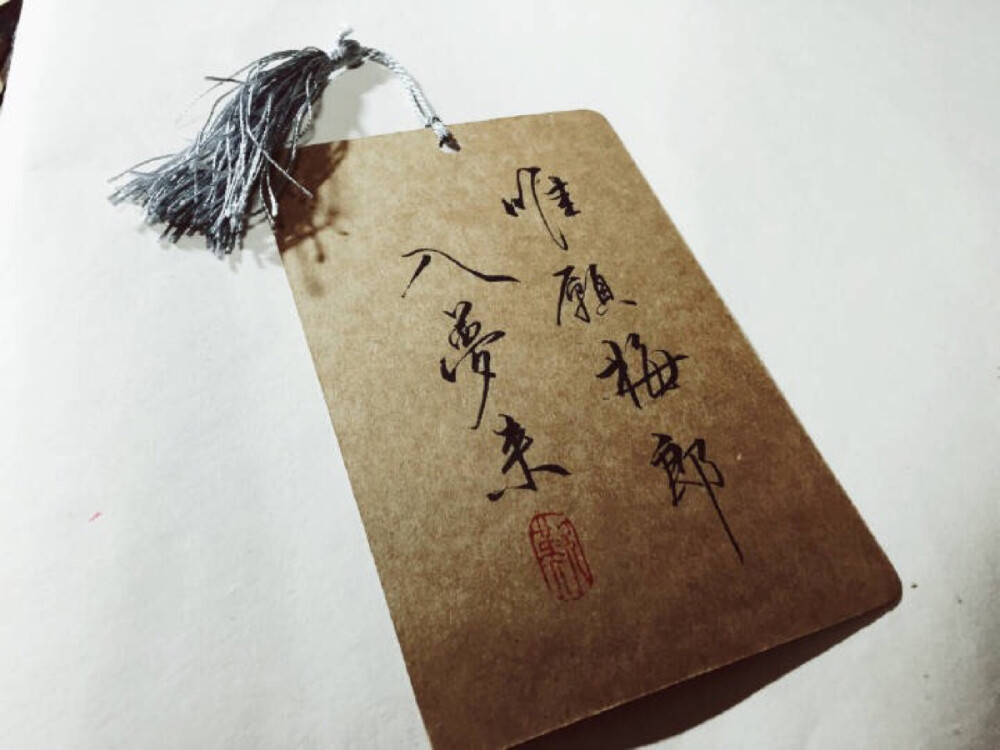 唯願梅郎
入夢来